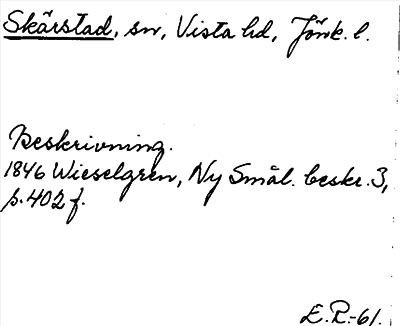 Skärstad, sn, Vista hd, Jönk. l.
Beskrivning.
1846 Wieselgren, Ny Smål. beskr. 3,
s. 402 f.
E. R.-61.